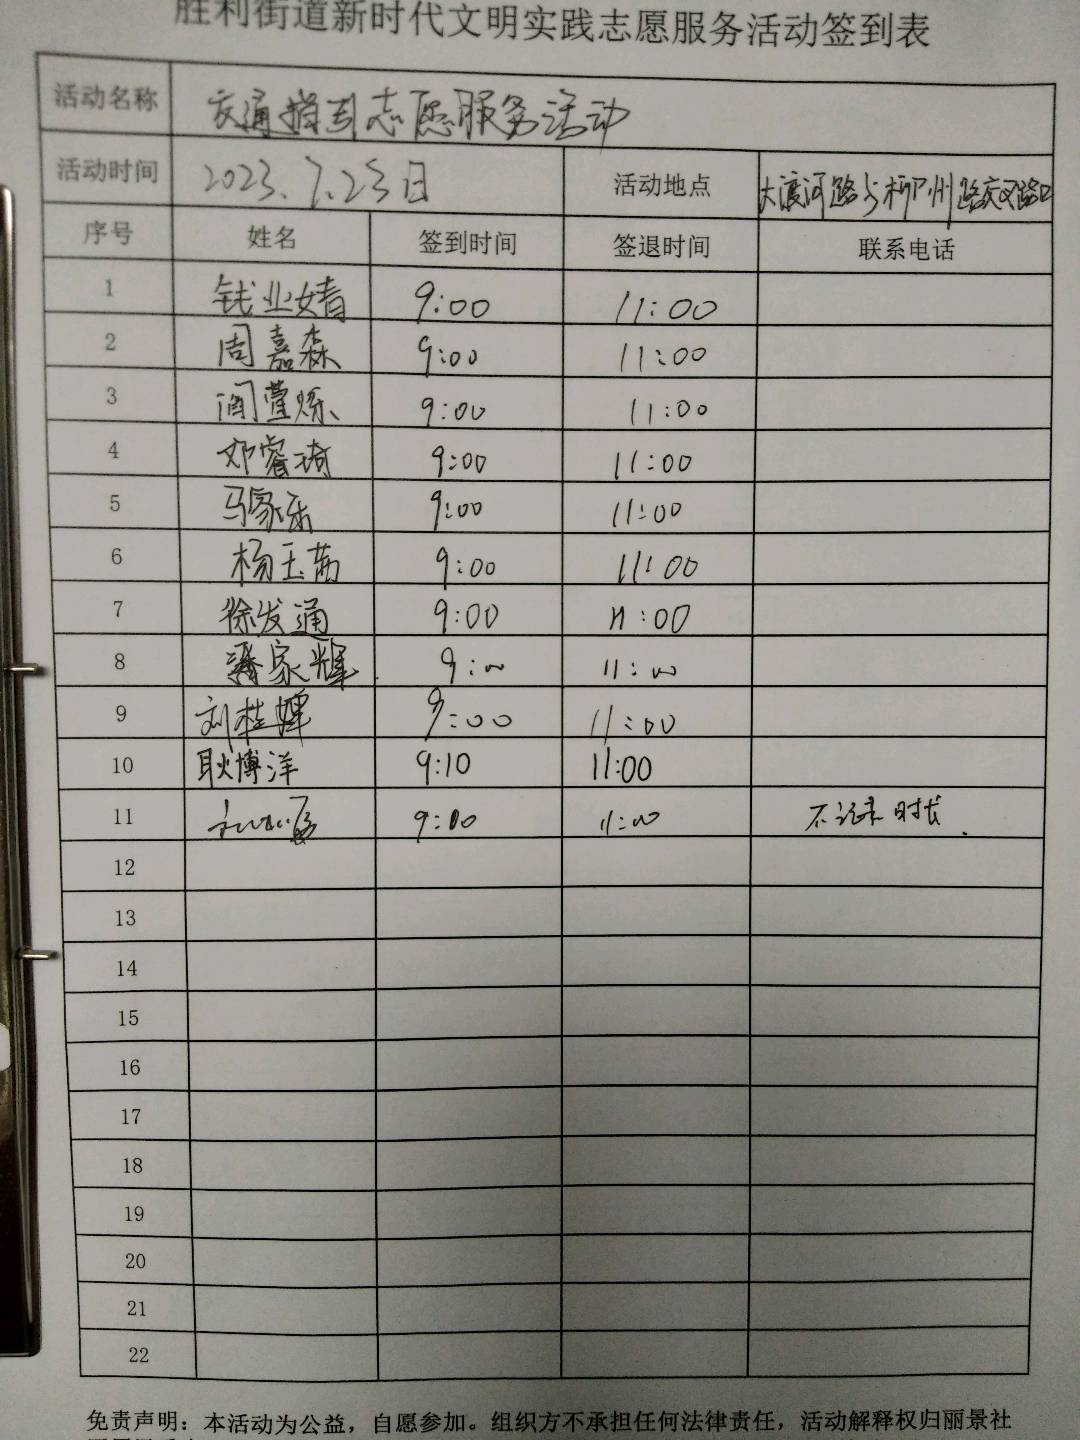 胜利街道新时代文明实践志愿服务活动签到表
活动名称 交通指引志愿服务活动
活动时间 2023.7.23日 活动地点 大渡河路与柳州路交叉路口
序号 姓名 签到时间 签退时间 联系电话
1 钱业婧 9:00 11:00
2 周嘉森 9:00 11:00
3 9:00 11:00
4 邓睿琦 9:00 11:00
5 马家乐 9:00 11:00
6 杨玉茜 9:00 11:00
7 徐发通 9:00 11:00
8 潘家辉 9:00 11:00
9 刘桂婵 9:00 11:00
10 耿博洋 9:10 11:00
11 9:00 11:00 不记录时长.
12
13
14
15
16
17
18
19
20
21
22
免责声明：本活动为公益，自愿参加。组织方不承担任何法律责任，活动解释权归丽景社